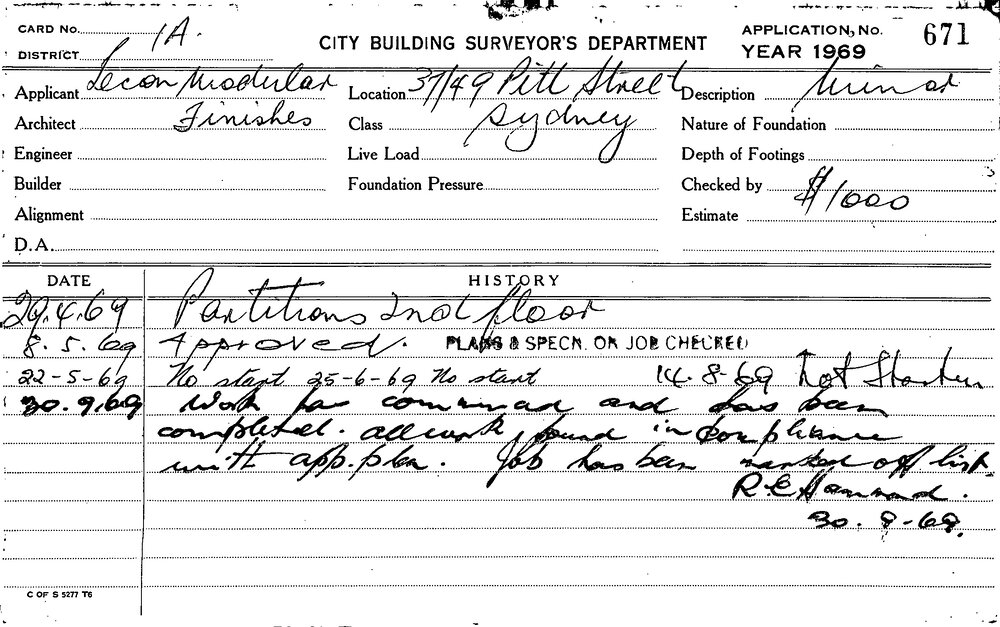 CARD No. 1A.
DISTRICT
CITY BUILDING SURVEYOR'S DEPARTMENT
APPLICATION, No. 671
YEAR 1969
Applicant Lecon Modular
Location 37/49 Pitt Street
Description Minor
Architect Finishes
Class Sydney
Nature of Foundation
Engineer
Live Load
Depth of Footings
Builder
Foundation Pressure
Checked by
Alignment
Estimate $1000
D.A.
DATE HISTORY
29.4.69 Partitions 2nd floor
8.5.69 Approved. PLANS & SPECN. ON JOB CHECKED
22-5-69 No start 25-6-69 No start 14.8.69 Not Started
30.9.69 Work has commenced and has been
completed. all work found in compliance
with app. plan. Job has been marked off list
R.E. Hammond.
30.9-69.
C OF S 5277 T6